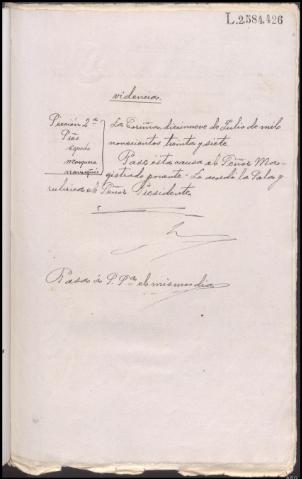 L.2584.426
videncia
Sección 2ª
La Coruña, diecinueve de Julio de mil
novecientos treinta y siete
Pase esta causa al Señor Ma-
gistrado ponente. Lo acordó la Sala y
rubrica el Señor Presidente
Pasa á P. Pª el mismo dia